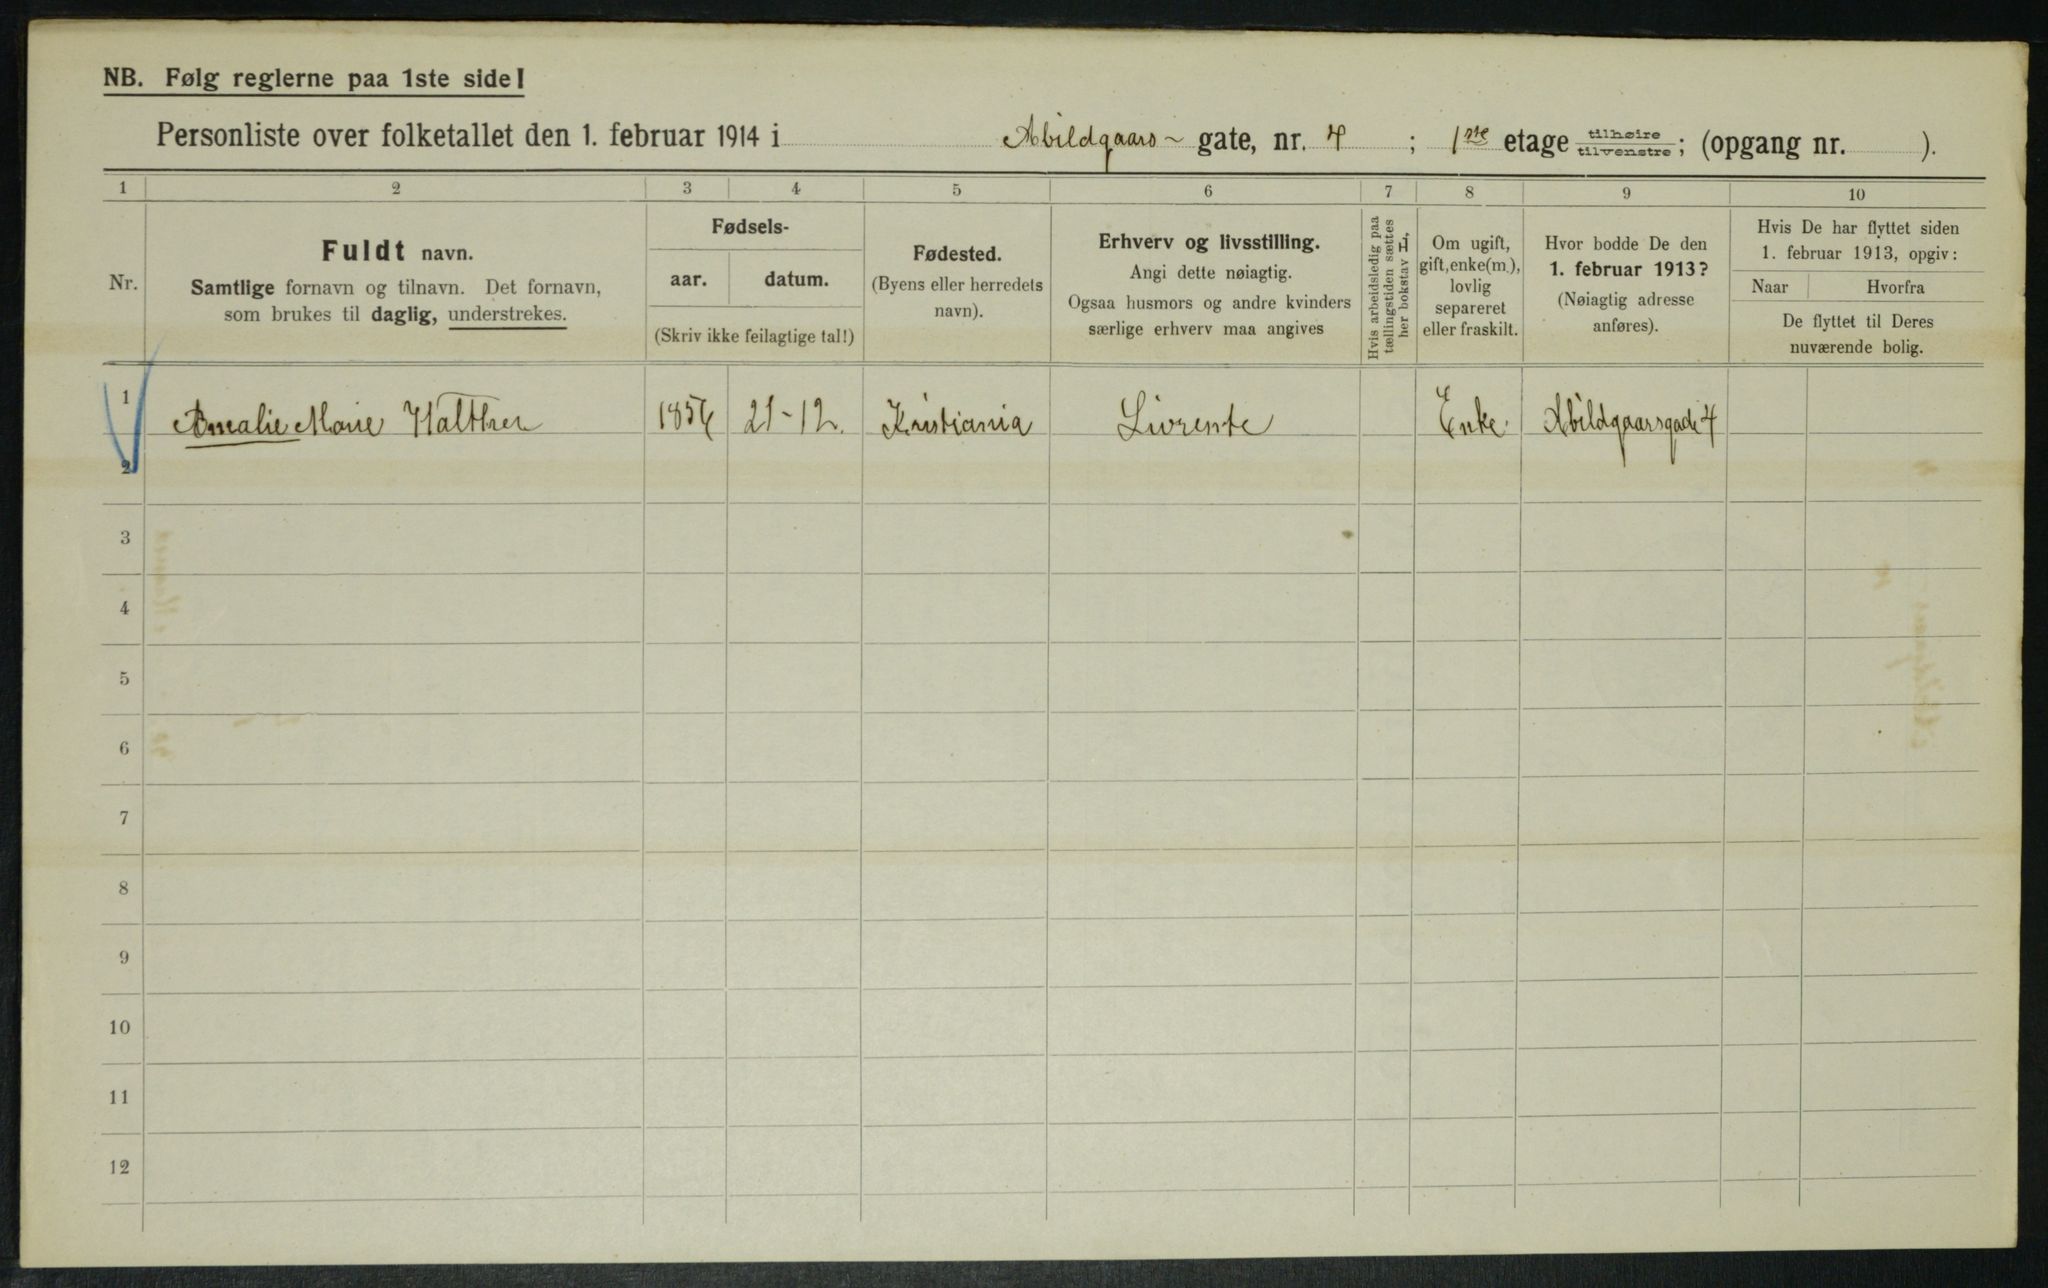 NB. Følg reglerne paa 1ste side!
Personliste over folketallet den 1. februar 1914 i Abildgaars- gate, nr. 4 ; 1ste etage tilhøire tilvenstre; (opgang nr. ).
1 2 3 4 5 6 7 8 9 10
Nr.
Fuldt navn.
Samtlige fornavn og tilnavn. Det fornavn,
som brukes til daglig, understrekes.
Fødsels-
aar. datum.
(Skriv ikke feilagtige tal!)
Fødested.
(Byens eller herredets
navn).
Erhverv og livsstilling.
Angi dette nøiagtig.
Ogsaa husmors og andre kvinders
særlige erhverv maa angives
Hvis arbeidsledig paa
tællingstiden sættes
her bokstav L,
Om ugift,
gift, enke(m.),
lovlig
separeret
eller fraskilt.
Hvor bodde De den
1. februar 1913?
(Nøiagtig adresse
anføres).
Hvis De har flyttet siden
1. februar 1913, opgiv:
Naar Hvorfra
De flyttet til Deres
nuværende bolig.
1 Amalie Marie Walther 1856 21-12. Kristiania Livrente Enke. Abildgaarsgade 4
2
3
4
5
6
7
8
9
10
11
12